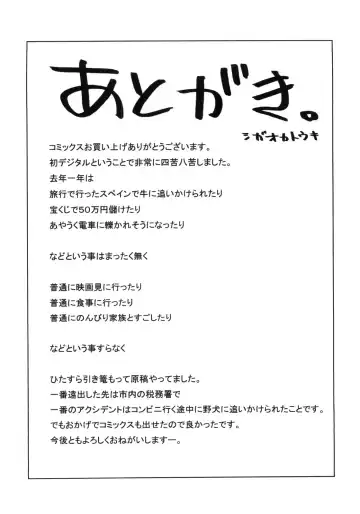 あとがき。
シガオカトウキ
コミックスお買い上げありがとうございます。
初デジタルということで非常に四苦八苦しました。
去年一年は
旅行で行ったスペインで牛に追いかけられたり
宝くじで５０万円儲けたり
あやうく電車に轢かれそうになったり
などという事はまったく無く
普通に映画見に行ったり
普通に食事に行ったり
普通にのんびり家族とすごしたり
などという事すらなく
ひたすら引き篭もって原稿やってました。
一番遠出した先は市内の税務署で
一番のアクシデントはコンビニ行く途中に野犬に追いかけられたことです。
でもおかげでコミックスも出せたので良かったです。
今後ともよろしくおねがいしますー。